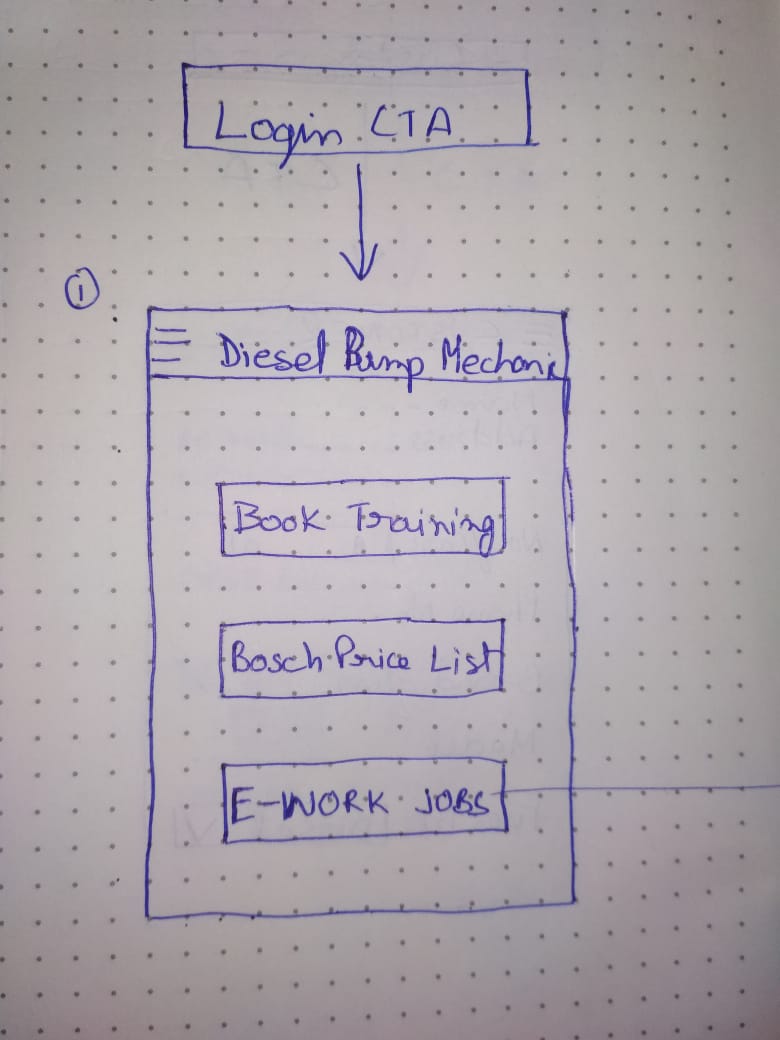 Login CTA
①
Diesel Pump Mechanic
Book Training
Bosch Price List
E-WORK JOBS